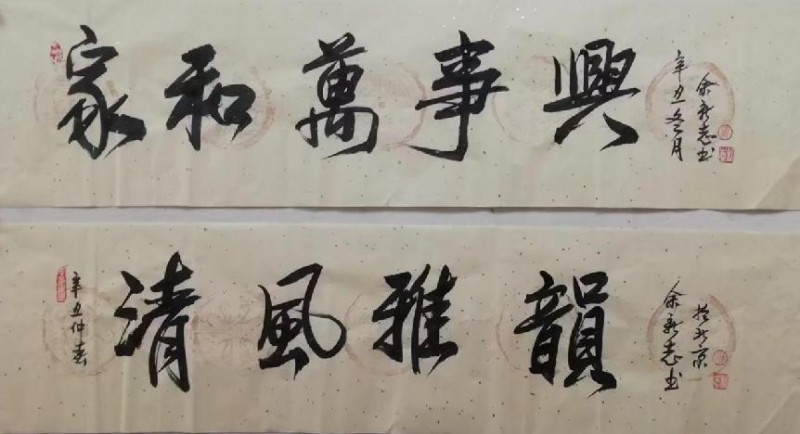 家和萬事興
辛丑冬月
余新志书
辛丑仲春
清風雅韻
於北京
余新志书